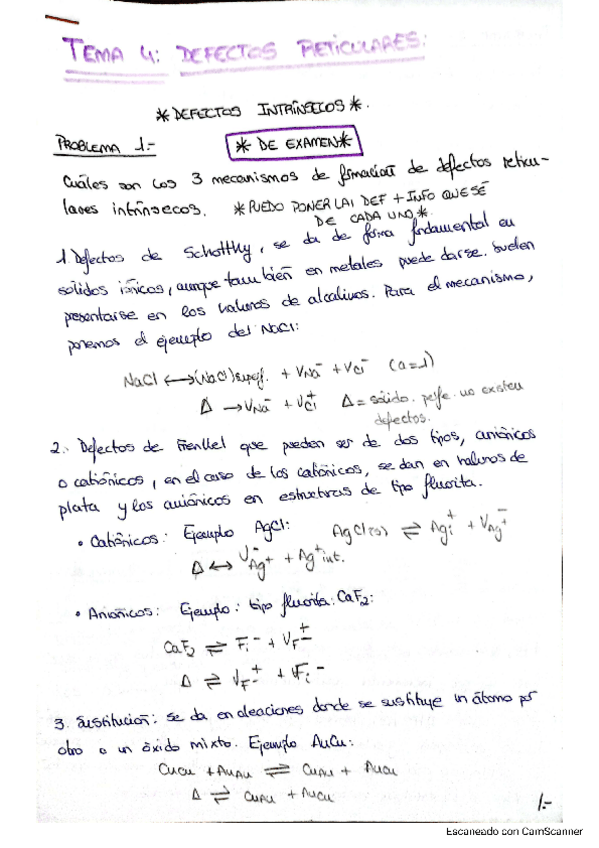 TEMA 4: DEFECTOS RETICULARES:
* DEFECTOS INTRÍNSECOS *.
PROBLEMA 1.- * DE EXAMEN *
Cuáles son los 3 mecanismos de formación de defectos reticu-
lares intrínsecos. * PUEDO PONER LA DEF + INFO QUE SÉ
DE CADA UNO *
1 Defectos de Schottky, se da de forma fundamental en
sólidos iónicos, aunque también en metales puede darse. Suelen
presentarse en los haluros de alcalinos. Para el mecanismo,
ponemos el ejemplo del NaCl:
NaCl ⟷ (NaCl)superf. + VNa⁻ + VCl⁻ (a=1)
Δ → VNa⁻ + VCl⁺ Δ = sólido. perfe. no existen
defectos.
2. Defectos de Frenkel que pueden ser de dos tipos, aniónicos
o catiónicos, en el caso de los catiónicos, se dan en haluros de
plata y los aniónicos en estructuras de tipo fluorita.
• Catiónicos: Ejemplo AgCl: AgCl(s) ⇌ Agi⁺ + VAg⁺⁻
Δ ⟷ VAg⁺⁻ + Ag⁺int.
• Aniónicos: Ejemplo: tipo fluorita: CaF₂:
CaF₂ ⇌ Fi⁻ + VF⁻⁺
Δ ⇌ VF⁻⁺ + Fi⁻
3. Sustitución: se da en aleaciones donde se sustituye un átomo por
otro o un óxido mixto. Ejemplo AuCu:
CuCu + AuAu ⇌ CuAu + AuCu
Δ ⇌ CuAu + AuCu
1.-
Escaneado con CamScanner